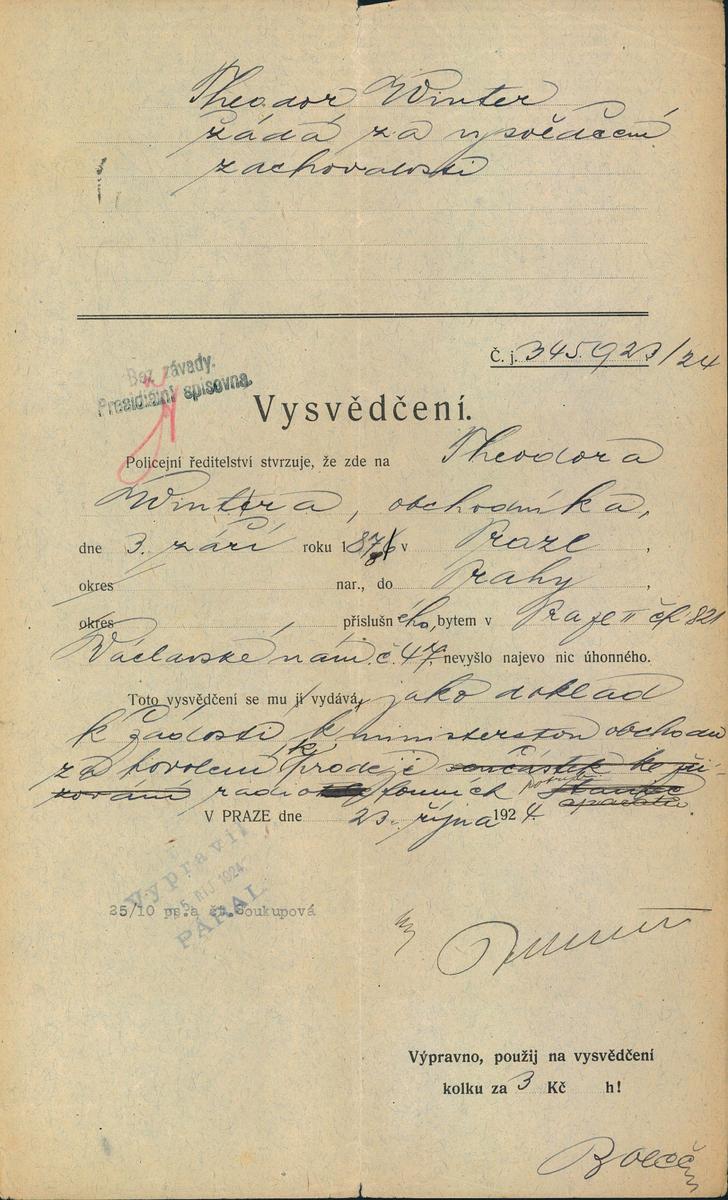 Theodor Winter
žádá za vysvědčení
zachovalosti
Č. j. 345.923/24
Bez závady.
Presidiální spisovna.
Vysvědčení.
Policejní ředitelství stvrzuje, že zde na Theodora
Wintra, obchodníka,
dne 3. září roku 1876 v Praze,
okres nar., do Prahy,
okres , příslušného, bytem v Praze II čp 821
Václavské nám. č. 47. nevyšlo najevo nic úhonného.
Toto vysvědčení se mu jí vydává, jako doklad
k žádosti k ministerstvu obchodu
za povolení ku prodeji součástek ke zři-
zování radio fonních potřeb stanic
V PRAZE dne 23. října 1924.
Vypravil
25 ŘÍJ 1924
PÁRAL
25/10 ps.a čt.Soukupová
Výpravno, použij na vysvědčení
kolku za 3 Kč h!